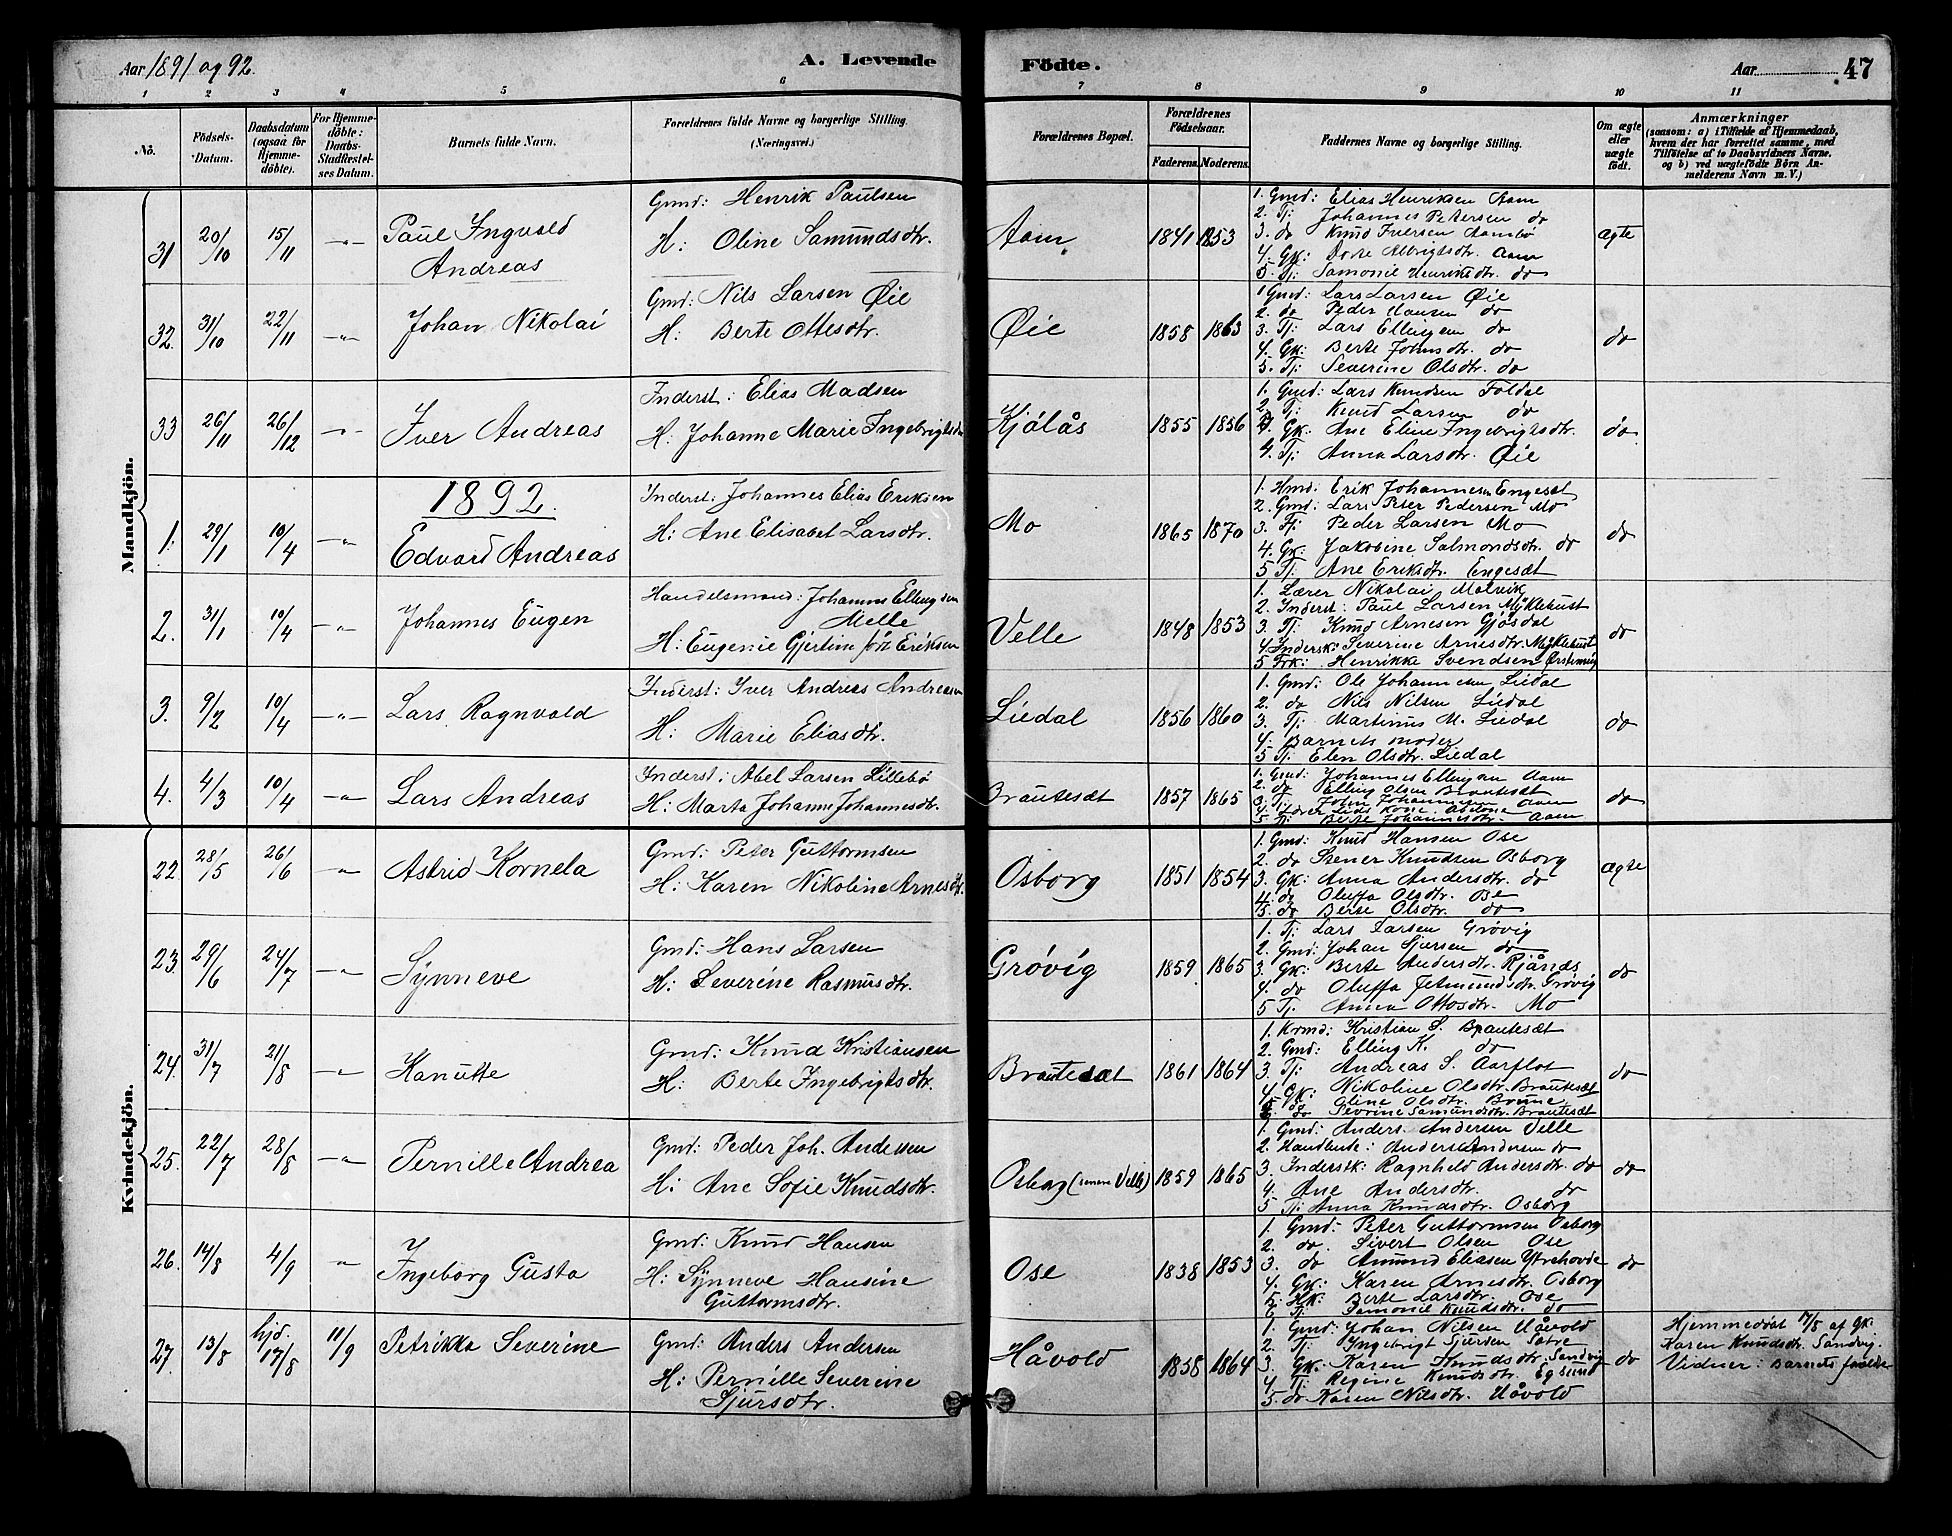 Aar 1891 og 92.
A. Levende Födte.
Aar 47
1 2 3 4 5 6 7 8 9 10 11
No.
Födsels-Datum.
Daabsdatum (ogsaa for Hjemme-döbte).
For Hjemme-döbte: Daabs-Stadfæstel-ses Datum.
Barnets fulde Navn.
Forældrenes fulde Navne og borgerlige Stilling. (Næringsvei.)
Forældrenes Bopæl.
Forældrenes Födselsaar.
Faderens. Moderens.
Faddernes Navne og borgerlige Stilling.
Om ægte eller uægte födt.
Anmærkninger
(saasom: a) i Tilfælde af Hjemmedaab, hvem der har forrettet samme, med Tilföielse af to Daabsvidners Navne, og b) ved uægtefödte Börn Anmelderens Navn m. V.)
Mandkjön.
31 20/10 15/11 -"- Paul Ingvald Andreas
Gmd: Henrik Paulsen
H: Oline Samundsdtr.
Aam 1841 1853
1. Gmd: Elias Henriksen Aam
2. Tj: Johannes Petersen do
3. do Knud Iversen Aambø
4. Gk: Dorte Albrigtsdtr. Aam
5. Tj: Samonie Henriksdtr. do
ægte
32. 31/10 22/11 -"- Johan Nikolai
Gmd: Nils Larsen Øie
H: Berte Ottesdtr.
Øie 1858 1863
1 Gmd: Lars Larsen Øie
2. do Peder Hansen do
3. Tj: Lars Ellingsen do
4. Gk: Berte Johnsdtr. do
5. Tj: Severine Olsdtr. do
do
33 26/11 26/12 -"- Iver Andreas
Inderst: Elias Madsen
H: Johanne Marie Ingebrigtsdtr
Kjölås 1855 1856
1. Gmd: Lars Knudsen Foldal
2. Tj: Knud Larsen do
Gk: Ane Eline Ingebrigtsdtr.
4. Tj: Anna Larsdtr. Øie
do
1892.
1. 29/1 10/4 -"- Edvard Andreas
Inderst: Johannes Elias Eriksen
H: Ane Elisabet Larsdtr.
Mo 1865 1870
1. Hmd: Erik Johannesen Engeset
2. Gmd: Lars Peter Pedersen Mo
3. Tj: Peder Larsen Mo
4. Gk: Jakobine Salmondsdtr. do
5 Tj: Ane Eriksdtr. Engesæt
do
2. 31/1 10/4 -"- Johannes Eugen
Handelsmand: Johannes Ellingsen Melle
H: Eugenie Gjertine født Eriksen
Velle 1848 1853
1. Lærer Nikolai Molvik
2. Inderst: Paul Larsen Myklebust
3. Tj: Knud Arnesen Gjösdal
4. Indersk: Severine Arnesdtr. Myklebust
5 Frk: Henrikke Svendsen Ørstenvig
do
3. 9/2 10/4 -"- Lars Ragnvald
Inderst: Iver Andreas Andreasen
H: Marie Eliasdtr.
Liedal 1856 1860
1. Gmd: Ole Johannesen Liedal
2. do Nils Nilsen Liedal
3. Tj: Martinus M. Liedal
4. Barnets moder
5 Tj: Elen Olsdtr. Liedal
do
4. 4/3 10/4 -"- Lars Andreas
Inderst: Abel Larsen Lillebö
H: Marta Johanne Johannesdtr.
Brautesæt 1857 1865
1. Gmd: Johannes Ellingsen Aam
2. do Elling Olsen Brautesæt
3. Tj: John Johannesen Aam
5. Tj: Berte Johannesdtr. Aam
do
Kvindekjön.
22 28/5 26/6 -"- Astrid Kornela
Gmd: Peter Guttormsen
H: Karen Nikoline Arnesdtr.
Osborg 1851 1854
1. Gmd: Knud Hansen Ose
2. do Stener Knudsen Osborg
3. Gk: Anna Andersdtr. do
4. do Oluffa Olsdtr. Be
5. do Berte Olsdtr. do
ægte
23. 29/6 24/7 -"- Synneve
Gmd: Hans Larsen
H: Severine Rasmusdtr.
Grövig 1859 1865
1. Tj: Lars Larsen Grövig
2. Gmd: Johan Sjursen do
3. Gk: Berte Andersdtr. Rjånes
4. do Oluffa Jetmundsdtr. Grövig
5 Tj: Anna Ottosdtr. Mo
do
24. 31/7 21/8 -"- Kanutte
Gmd: Knud Kristiansen
H: Berte Ingebrigtsdtr.
Brautesæt 1861 1864
1. Krmd: Kristian S. Brautesæt
2. Gmd: Elling K. do
3. Tj: Andreas S. Aarflot
4. Gk: Nikoline Olsdtr. Brautesæt
5 Tj: Oline Olsdtr. Brune
6 do Sevrine Samundsdtr. Brautesæt
do
25. 22/7 28/8 -"- Pernille Andrea
Gmd: Peder Joh. Andersen
H: Ane Sofie Knudsdtr.
Osborg (senere Velle) 1859 1865
1. Gmd: Anders Andersen Velle
2. Handlende: Anders Andersen do
3. Inderstk: Ragnhild Andersdtr. do
4. Ane Andersdtr. do
5 Tj: Anna Knudsdtr. Osborg
do
26. 14/8 4/9 " Ingeborg Gusta
Gmd: Knud Hansen
H: Synneve Hansine Guttormsdtr.
Ose 1838 1853
1. Gmd: Peter Guttormsen Osborg
2. do. Sivert Olsen Ose
3. do Amund Eliasen Ytrehovde
4. Gk: Karen Arnesdtr. Osborg
5. Hk: Berte Larsdtr. Ose
6 Tj: Samonie Knudsdtr. do
do
27. 13/8 hjd. 17/8 11/9 Petrikka Severine
Gmd: Anders Andersen
H: Pernille Severine Sjursdtr.
Håvold 1858 1864
1. Gmd: Johan Nilsen Håvold
2. Tj: Ingebrigt Sjursen Sætre
3. Gk: Karen Knudsdtr. Sandvig
4. Tj: Regine Knudsdtr. Egsund
5. do Karen Nilsdtr. Håvold
do
Hjemmedøbt 17/8 af Gk.
Karen Knudsdtr. Sandvig.
Vidner: Barnets forældre